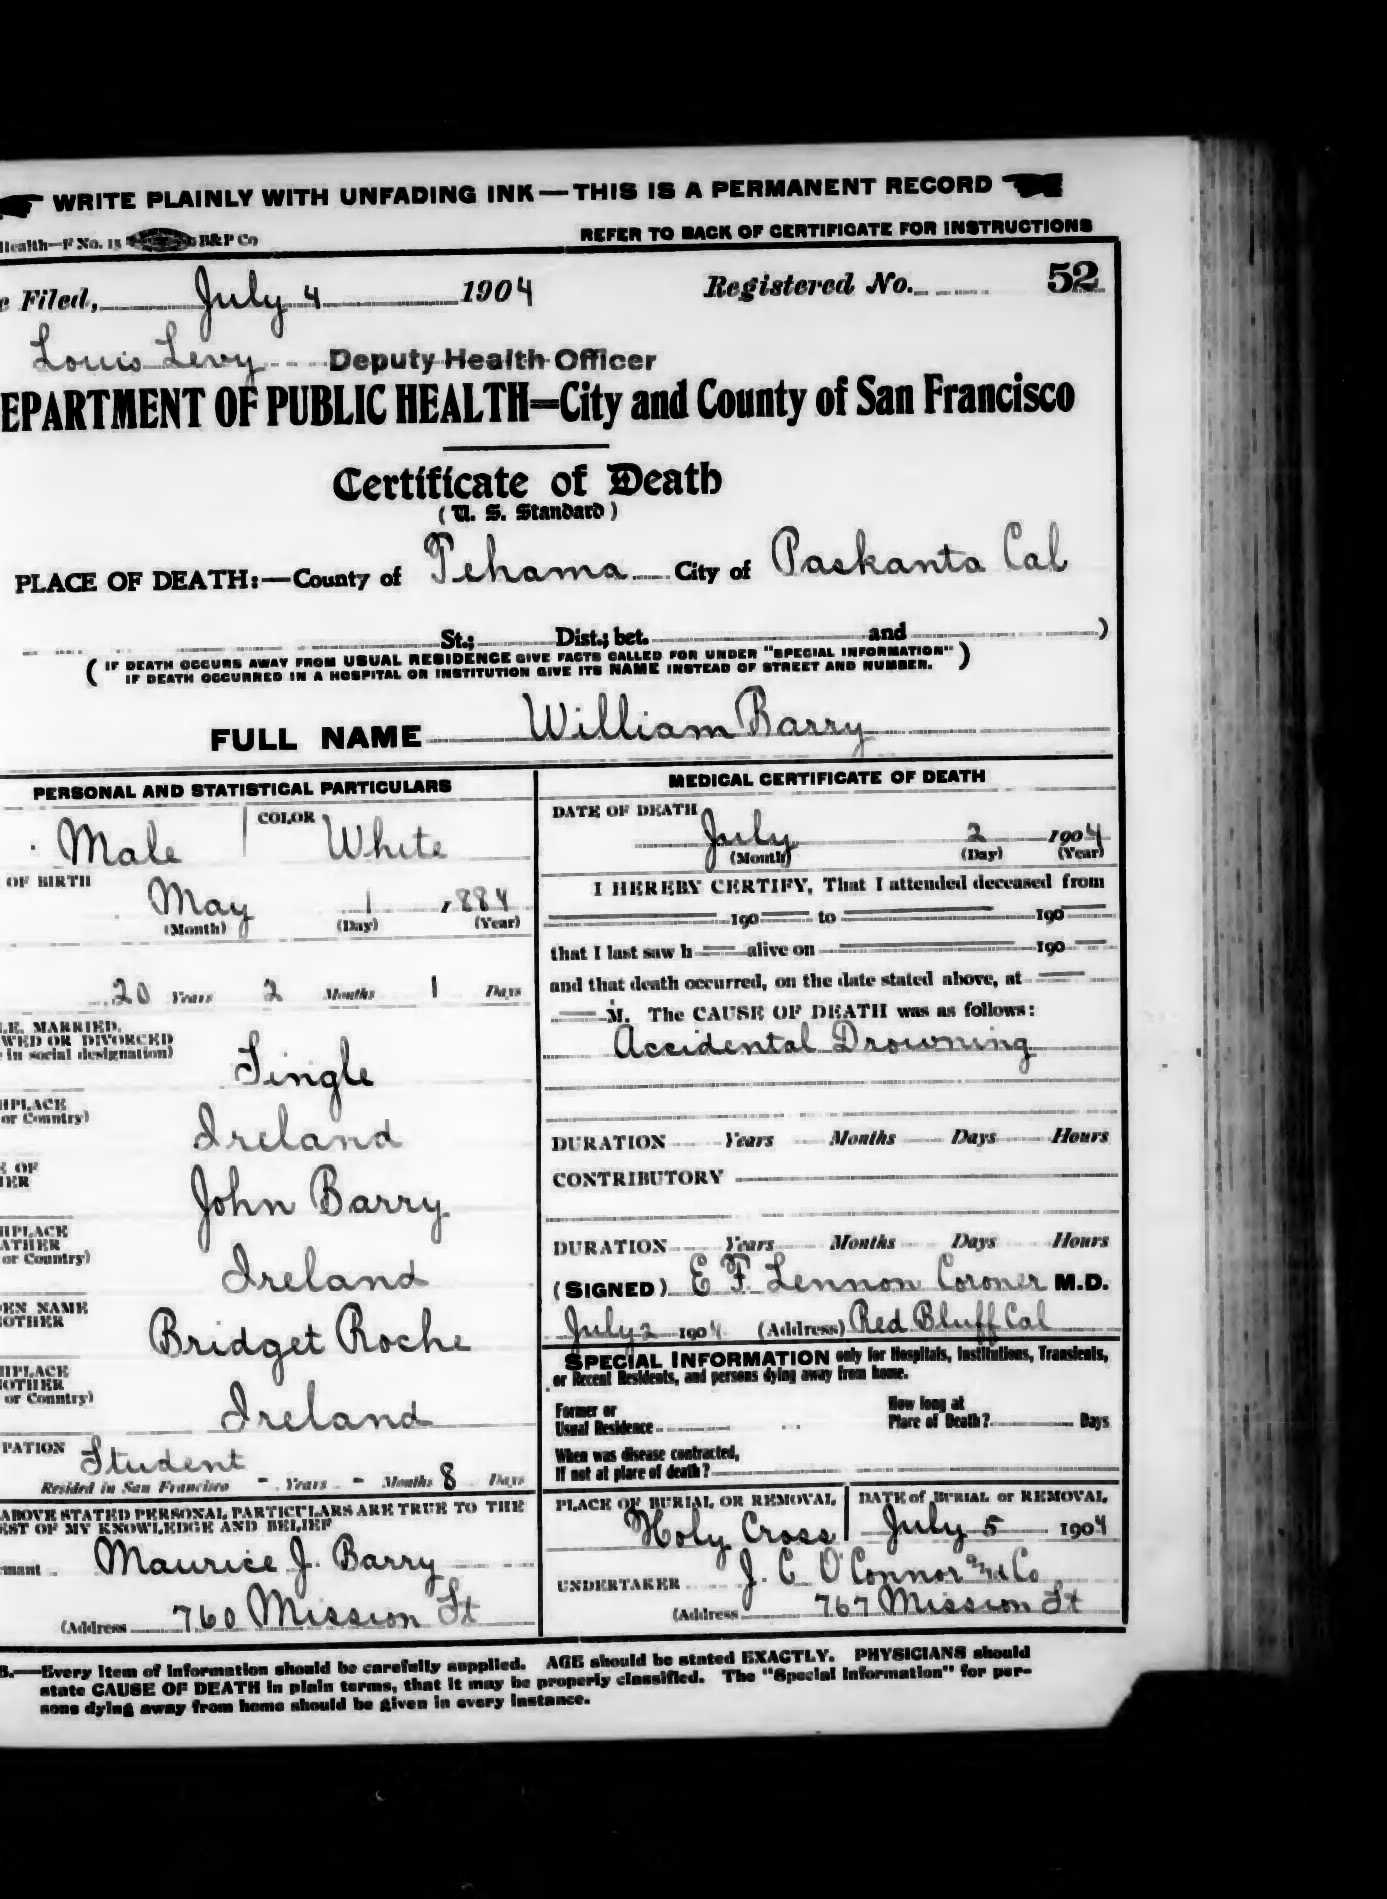 WRITE PLAINLY WITH UNFADING INK—THIS IS A PERMANENT RECORD
Health—F No. 15 B&P Co REFER TO BACK OF CERTIFICATE FOR INSTRUCTIONS
e Filed, July 4 1904 Registered No. 52
Louis Levy Deputy Health Officer
EPARTMENT OF PUBLIC HEALTH=City and County of San Francisco
Certificate of Death
(U. S. Standard)
PLACE OF DEATH:—County of Tehama City of Paskanta Cal
St.; Dist.; bet. and )
( IF DEATH OCCURS AWAY FROM USUAL RESIDENCE GIVE FACTS CALLED FOR UNDER "SPECIAL INFORMATION" )
IF DEATH OCCURRED IN A HOSPITAL OR INSTITUTION GIVE ITS NAME INSTEAD OF STREET AND NUMBER.
FULL NAME William Barry
PERSONAL AND STATISTICAL PARTICULARS
Male COLOR White
OF BIRTH
May 1 1884
(Month) (Day) (Year)
20 Years 2 Months 1 Days
LE, MARRIED,
WED OR DIVORCED
in social designation)
Single
HPLACE
or Country)
Ireland
E OF
HER
John Barry
HPLACE
ATHER
or Country)
Ireland
DEN NAME
MOTHER
Bridget Roche
HPLACE
MOTHER
or Country)
Ireland
PATION Student
Resided in San Francisco - Years - Months 8 Days
ABOVE STATED PERSONAL PARTICULARS ARE TRUE TO THE
EST OF MY KNOWLEDGE AND BELIEF
rmant Maurice J. Barry
(Address 760 Mission St
MEDICAL CERTIFICATE OF DEATH
DATE OF DEATH
July 2 1904
(Month) (Day) (Year)
I HEREBY CERTIFY, That I attended deceased from
190 to 190
that I last saw h alive on 190
and that death occurred, on the date stated above, at
M. The CAUSE OF DEATH was as follows:
Accidental Drowning
DURATION Years Months Days Hours
CONTRIBUTORY
DURATION Years Months Days Hours
(SIGNED) E F Lennon Coroner M.D.
July 2 1904 (Address) Red Bluff Cal
SPECIAL INFORMATION only for Hospitals, Institutions, Transients,
or Recent Residents, and persons dying away from home.
Former or
Usual Residence
How long at
Place of Death? Days
When was disease contracted,
If not at place of death?
PLACE OF BURIAL OR REMOVAL
Holy Cross
DATE of BURIAL or REMOVAL
July 5 1904
UNDERTAKER J. C. O'Connor and Co
(Address 767 Mission St
B.—Every item of information should be carefully supplied. AGE should be stated EXACTLY. PHYSICIANS should
state CAUSE OF DEATH in plain terms, that it may be properly classified. The "Special Information" for per-
sons dying away from home should be given in every instance.